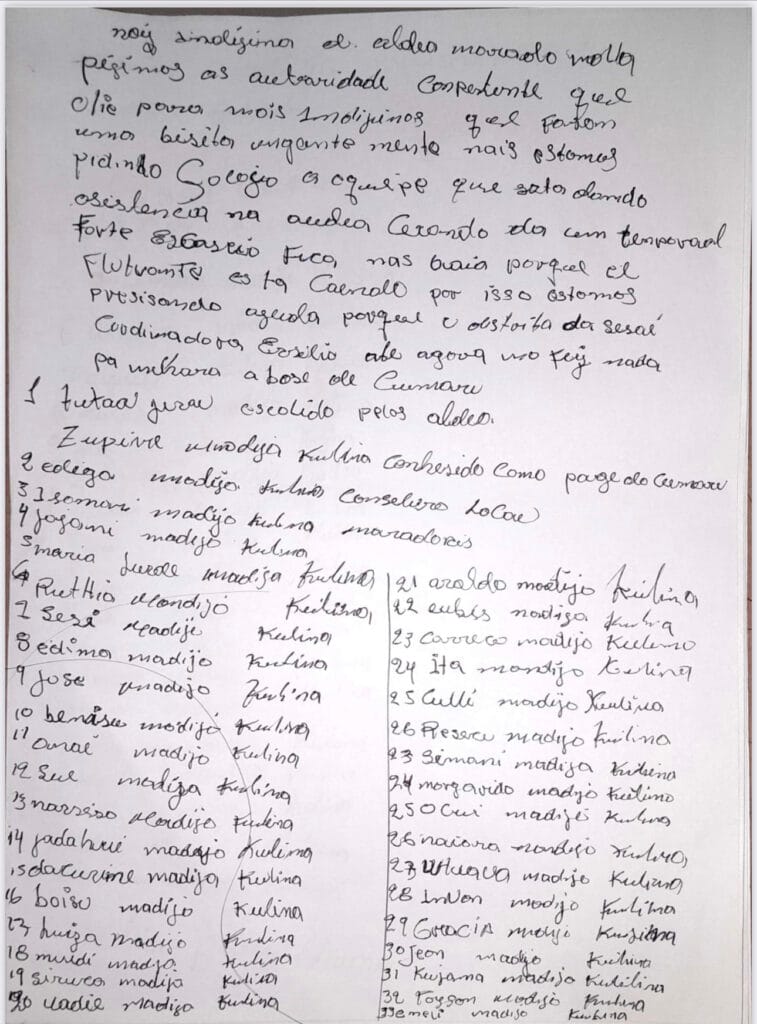 noiz indizina d. aldea morado molla
pizimos as autoaridade conpertente quel
olie para mois indijinos quel fazem
uma bisita urgante mente nais estomos
pidindo Socogio a equipe que sata dando
asistencia na audea Cerando da um temporaal
Forte Fica nas baia porquel el
Flutuante esta Caendo por isso estomos
presisando aguda porquel o distrita da sesaí
Coordinadora Ersilio ate agora no feiz nada
pa milhara a base de Cumaru
1 tutaa jerae escolido pelos aldea.
Zupine madija Kulina conhesido como page do Cumaru
2 edega madija Kulina Conseliero Locae
3 Isomari madijo Kulina maradoreis
4 jogomi madijo Kulina
5 maria madija Kulina
6 Ruthia Mandijo Kulina
7 Sesi Madije Kulina
8 edima madijo Kulina
9 jose madijo Kulina
10 benasu modijo Kulina
11 anaé madijo Kulina
12 Sue madija Kulina
13 narsiso Madijo Kulina
14 jadahué madajo Kulina
15 dacurime madija Kulina
16 boisu madijo Kulina
17 huiza madijo Kulina
18 muidi madja Kulina
19 siruca madija Kulina
20 uadie madija Kulina
21 araldo modijo Kulina
22 eubss nadiga Kulina
23 Carreco madijo Kulino
24 Ita mandijo Kulina
25 Culli madijo Kulina
26 Peseru madijo Kulina
23 Simani madija Kulina
24 morgarido madijo Kulino
25 Ocui madijo Kulina
26 naiara mandijo Kulina
27 madijo Kulina
28 Invon modijo Kulina
29 GRACIA modijo Kulina
30 Jeon madijo Kulina
31 Kujama madijo Kulina
32 Foyson modijo Kulina
33 emeli madijo Kulina